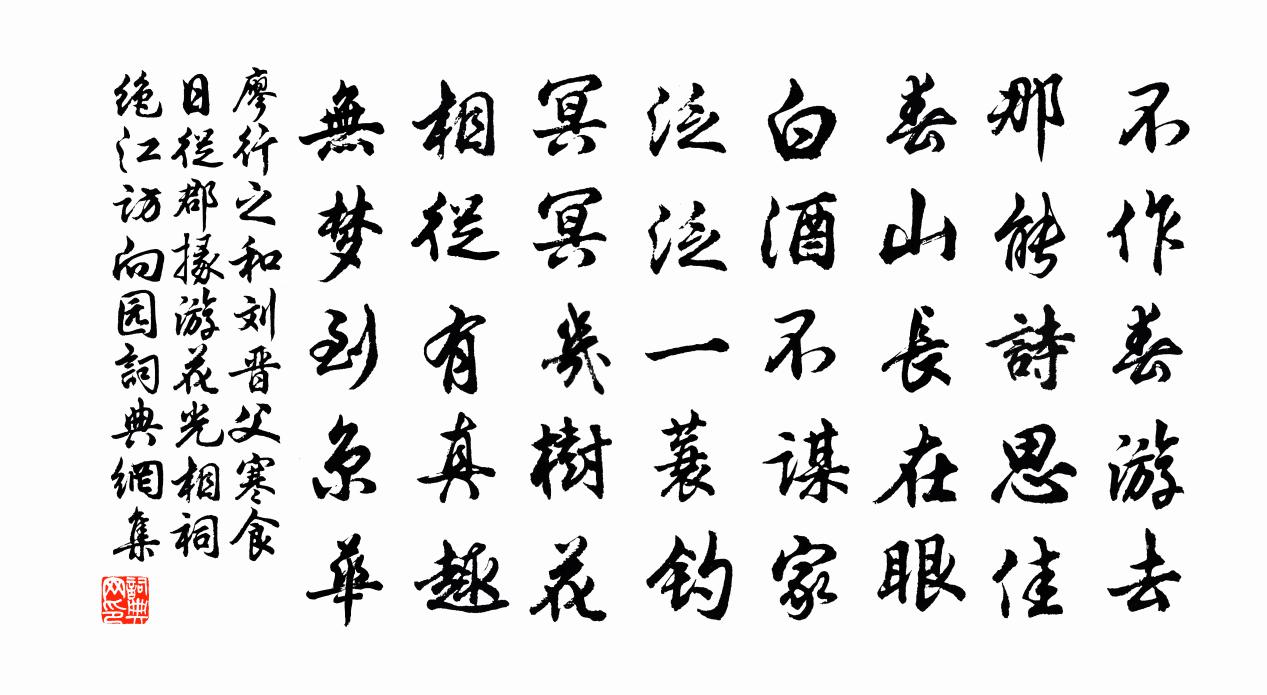 不作春游去
那能詩思佳
春山長在眼
白酒不謀家
泛泛一蓑钓
冥冥幾樹花
相從有真趣
無梦到京華
廖行之和刘晋父寒食
日從郡掾游花光相祠
绝江访向园詞典網集
詞典
网印